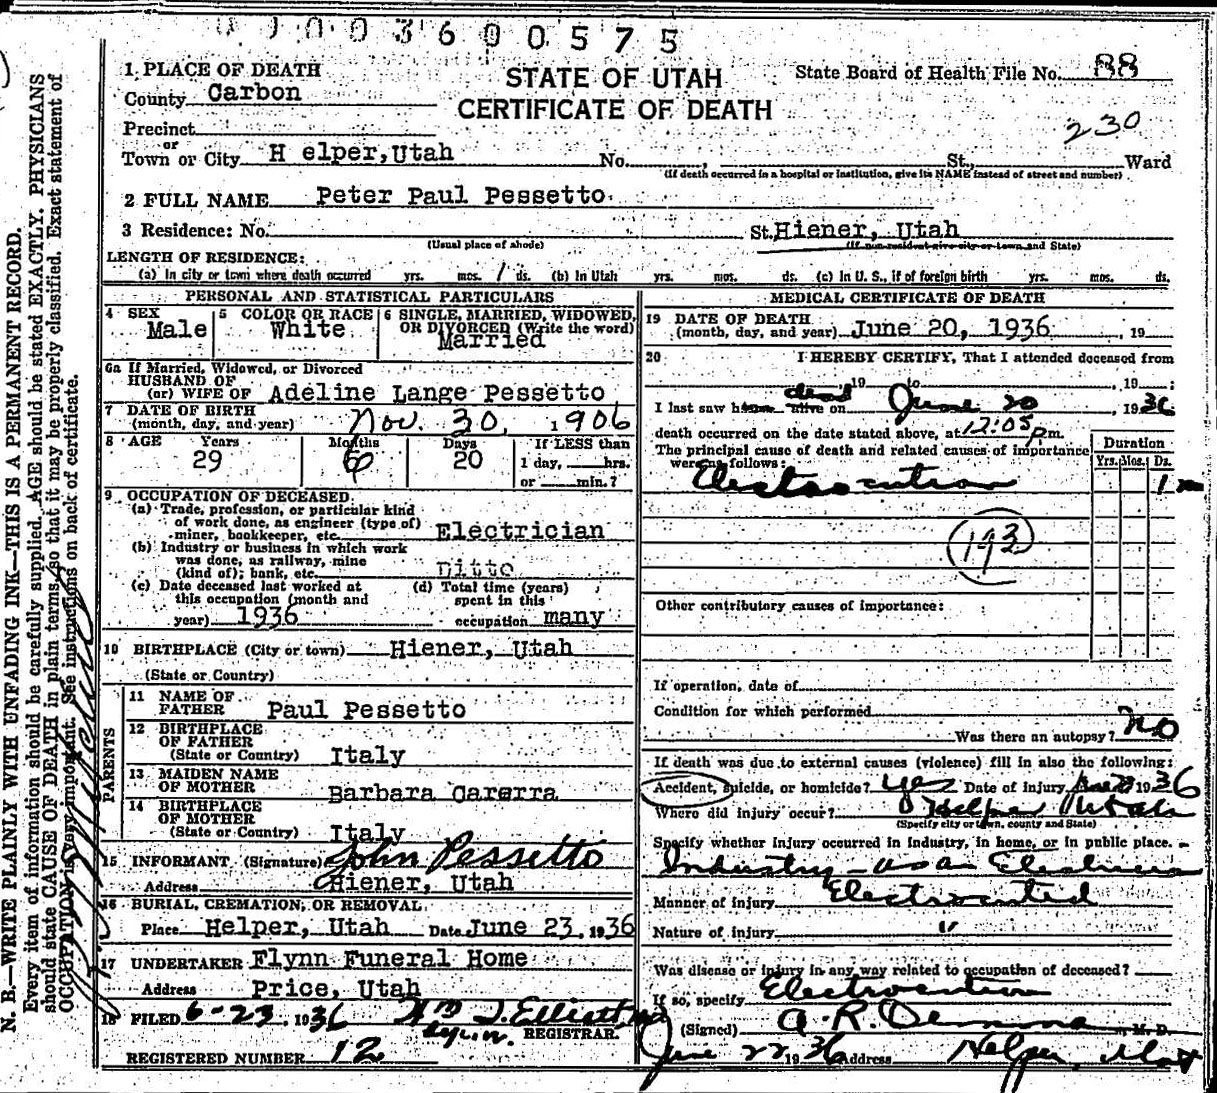 003600575
STATE OF UTAH
CERTIFICATE OF DEATH
State Board of Health File No. 88
230
1. PLACE OF DEATH
County Carbon
Precinct
or
Town or City H elper,Utah No. , St., Ward
(If death occurred in a hospital or institution, give its NAME instead of street and number)
2 FULL NAME Peter Paul Pessetto
3 Residence: No. St. Hiener, Utah
(Usual place of abode) (If non-resident give city or town and State)
LENGTH OF RESIDENCE:
(a) In city or town where death occurred yrs. mos. 1 ds. (b) In Utah yrs. mos. ds. (c) In U. S., if of foreign birth yrs. mos. ds.
PERSONAL AND STATISTICAL PARTICULARS
4 SEX Male
5 COLOR OR RACE White
6 SINGLE, MARRIED, WIDOWED, OR DIVORCED (Write the word) Married
6a If Married, Widowed, or Divorced
HUSBAND OF
(or) WIFE OF Adeline Lange Pessetto
7 DATE OF BIRTH
(month, day, and year) Nov. 30, 1906
8 AGE Years Months Days If LESS than
29 6 20 1 day, hrs.
or min.?
9 OCCUPATION OF DECEASED
(a) Trade, profession, or particular kind
of work done, as engineer (type of)
miner, bookkeeper, etc. Electrician
(b) Industry or business in which work
was done, as railway, mine
(kind of); bank, etc. Ditto
(c) Date deceased last worked at
this occupation (month and
year) 1936
(d) Total time (years)
spent in this
occupation many
10 BIRTHPLACE (City or town) Hiener, Utah
(State or Country)
PARENTS
11 NAME OF
FATHER Paul Pessetto
12 BIRTHPLACE
OF FATHER
(State or Country) Italy
13 MAIDEN NAME
OF MOTHER Barbara Carerra
14 BIRTHPLACE
OF MOTHER
(State or Country) Italy
15 INFORMANT (Signature) John Pessetto
Address Hiener, Utah
16 BURIAL, CREMATION, OR REMOVAL
Place Helper, Utah Date June 23, 1936
17 UNDERTAKER Flynn Funeral Home
Address Price, Utah
18 FILED 6-23, 1936 Wm J. Elliott
REGISTRAR.
REGISTERED NUMBER 12
MEDICAL CERTIFICATE OF DEATH
19 DATE OF DEATH
(month, day, and year) June 20, 1936 , 19
20 I HEREBY CERTIFY, That I attended deceased from
, 19 to , 19 ;
I last saw h alive on dead June 20, 1936
death occurred on the date stated above, at 12:05 p m.
The principal cause of death and related causes of importance
were as follows:
Duration
Yrs. Mos. Ds.
Electrocution 1
193
Other contributory causes of importance:
If operation, date of
Condition for which performed
Was there an autopsy? No
If death was due to external causes (violence) fill in also the following:
Accident, suicide, or homicide? yes Date of injury June 20 1936
Where did injury occur? Helper Utah
(Specify city or town, county and State)
Specify whether injury occurred in industry, in home, or in public place.
Industry - as an Electrician
Manner of injury Electrocuted
Nature of injury "
Was disease or injury in any way related to occupation of deceased?
If so, specify Electrocution
(Signed) A. R. M. D.
June 22 1936 Address Helper, Utah
N. B.—WRITE PLAINLY WITH UNFADING INK—THIS IS A PERMANENT RECORD.
Every item of information should be carefully supplied. AGE should be stated EXACTLY. PHYSICIANS
should state CAUSE OF DEATH in plain terms, so that it may be properly classified. Exact statement of
OCCUPATION is very important. See instructions on back of certificate.